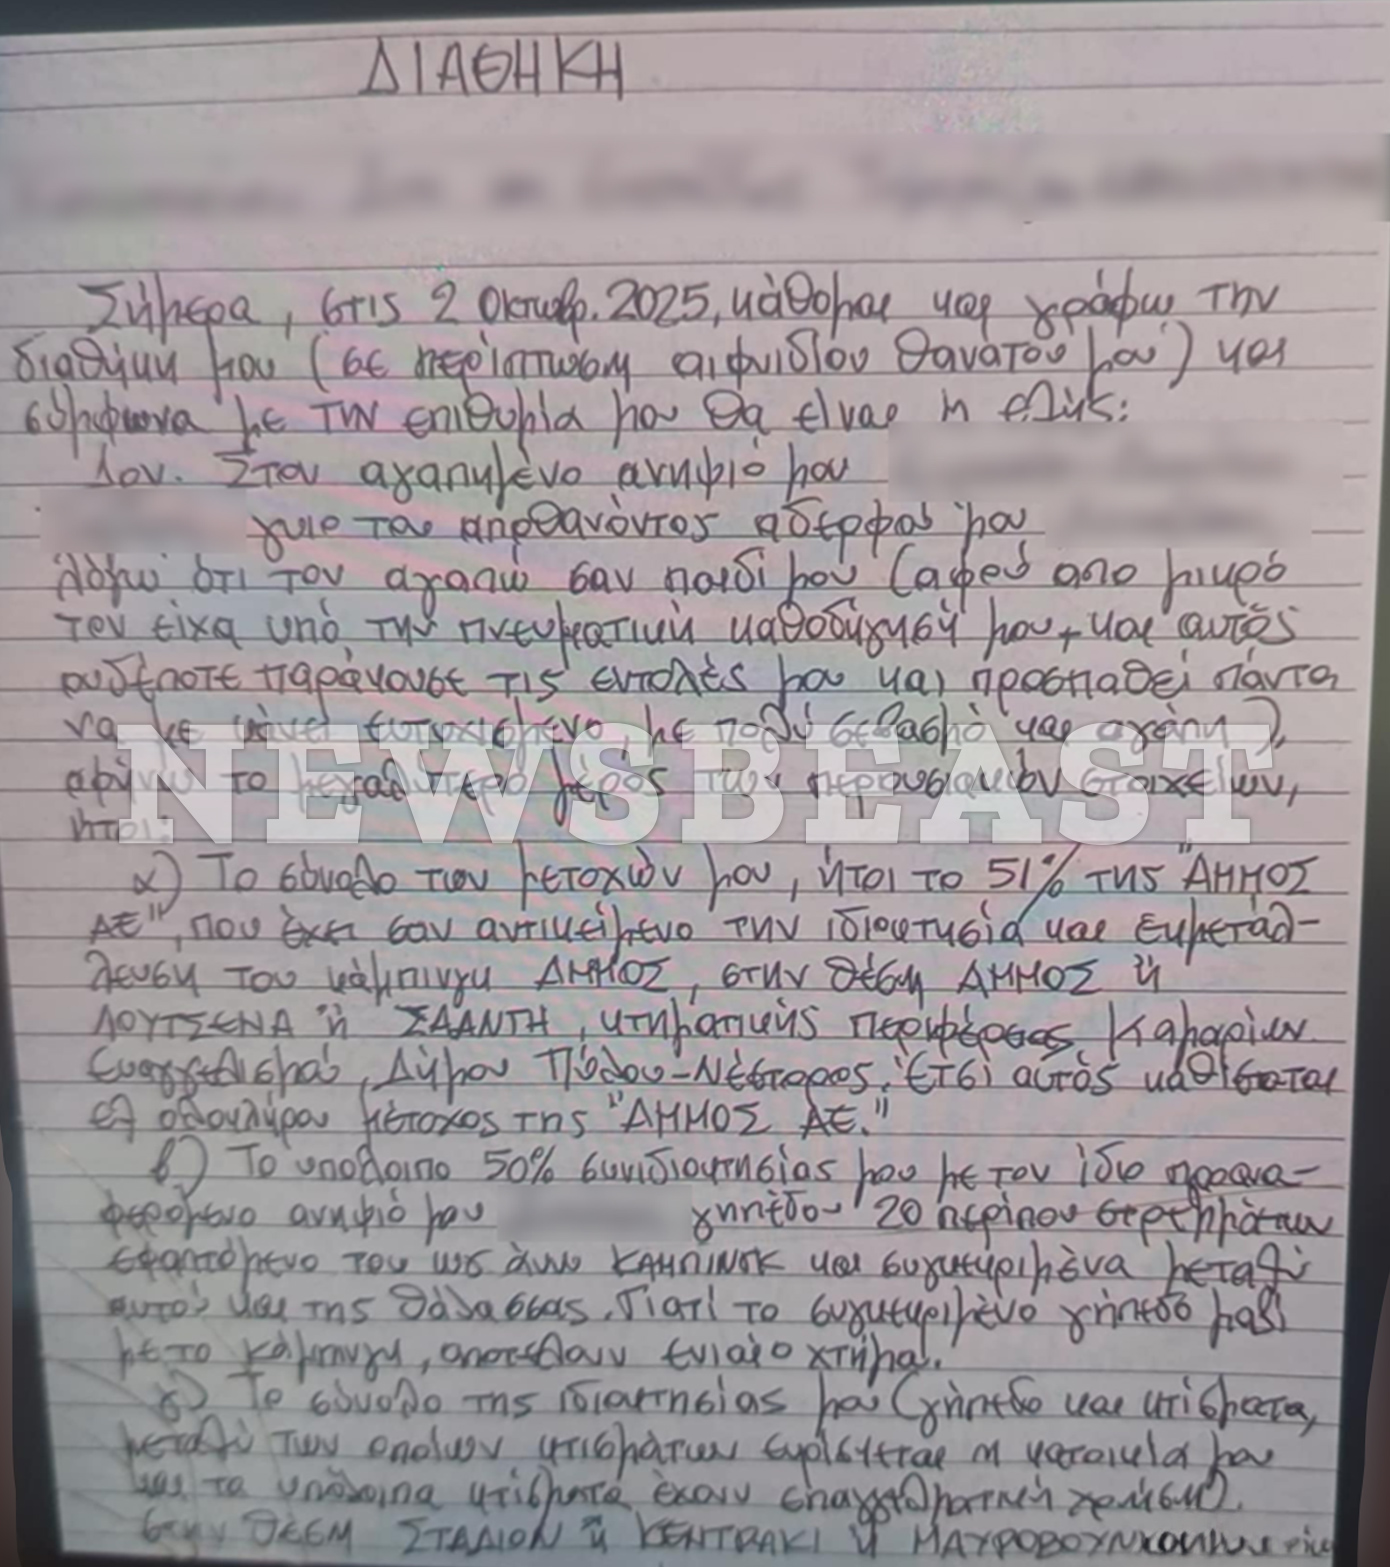 ΔΙΑΘΗΚΗ
Σήμερα, στις 2 Οκτωβρ. 2025, κάθομαι και γράφω την
διαθήκη μου (σε περίπτωση αιφνιδίου θανάτου μου) και
σύμφωνα με την επιθυμία μου θα είναι η εξής:
1ον. Στον αγαπημένο ανηψιό μου
γυιο του αποθανόντος αδερφού μου
λόγω ότι τον αγαπώ σαν παιδί μου (αφού απο μικρό
τον είχα υπό την πνευματική καθοδήγησή μου, και αυτός
ουδέποτε παράκουσε τις εντολές μου και προσπαθεί πάντα
να με κάνει ευτυχισμένο, με πολύ σεβασμό και αγάπη),
αφήνω το μεγαλύτερο μέρος των περουσιακών στοιχείων,
ήτοι:
α) Το σύνολο των μετοχών μου, ήτοι το 51% της "ΑΜΜΟΣ
ΑΕ", που έχει σαν αντικείμενο την ιδιοκτησία και εκμετάλ-
λευση του κάμπινγκ ΑΜΜΟΣ, στην θέση ΑΜΜΟΣ ή
ΛΟΥΤΣΕΝΑ ή ΣΑΑΝΤΗ, κτηματικής περιφέρειας Καμαρίων
Ευαγγελισμού, Δήμου Πύλου-Νέστορος. Έτσι αυτός καθίσταται
εξ ολοκλήρου μέτοχος της "ΑΜΜΟΣ ΑΕ."
β) Το υπόλοιπο 50% συνιδιοκτησίας μου με τον ίδιο προανα-
φερόμενο ανηψιό μου γηπέδου 20 περίπου στρεμμάτων
εφαπτόμενο του ως άνω ΚΑΜΠΙΝΓΚ και συγκεκριμένα μεταξύ
αυτού και της θάλασσας. Γιατί το συγκεκριμένο γήπεδο μαζί
με το κάμπινγκ, αποτελούν ενιαίο χτήμα.
γ) Το σύνολο της ιδιοκτησίας μου (γήπεδο και κτίσματα,
μεταξύ των οποίων κτισμάτων ευρίσκεται η κατοικία μου
και τα υπόλοιπα κτίσματα έχουν επαγγελματική χρήση).
στην θέση ΣΤΑΔΙΟΝ ή ΚΕΝΤΡΑΚΙ ή
NEWSBEAST